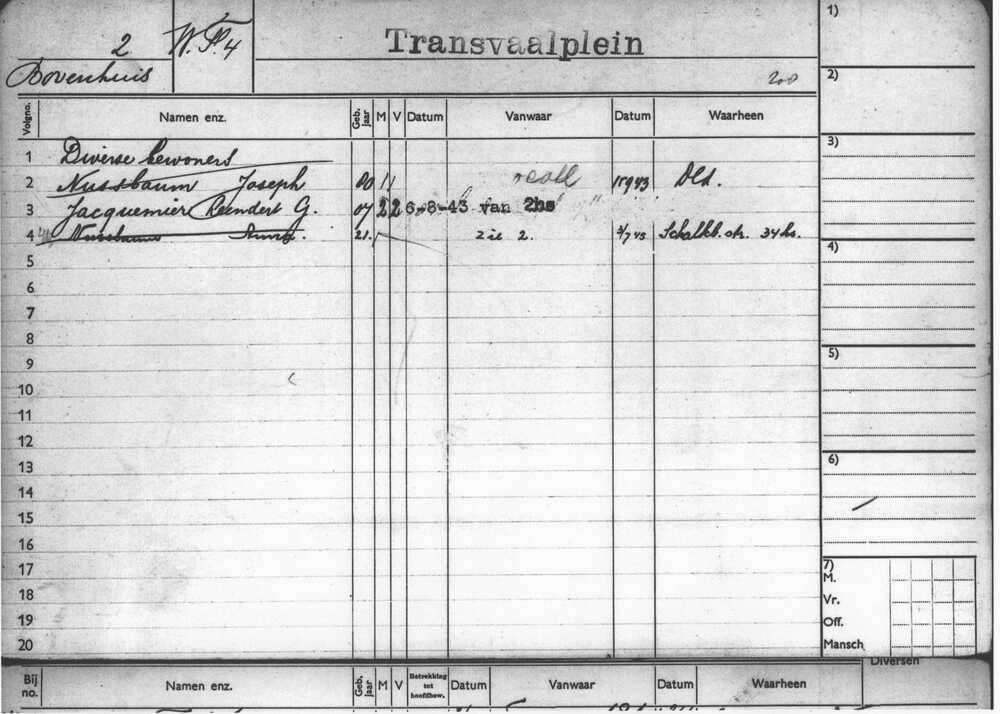 2 W. Pl. 4 Transvaalplein
Bovenhuis 200
Volgno. Namen enz. Geb. jaar M V Datum Vanwaar Datum Waarheen
1 Diverse bewoners
2 Nussbaum Joseph 80 1 1 15943 Dld.
3 Jacquemier Reendert G. 07 2 2 6-8-43 van 2hs
4 Nussbaum 21. zie 2. 3/7 43 Schalkb. str. 34 hs.
5
6
7
8
9
10
11
12
13
14
15
16
17
18
19
20
1)
2)
3)
4)
5)
6)
7)
M.
Vr.
Off.
Mansch.
Diversen
Bij no. Namen enz. Geb. jaar M V Betrekking tot hoofdbew. Datum Vanwaar Datum Waarheen